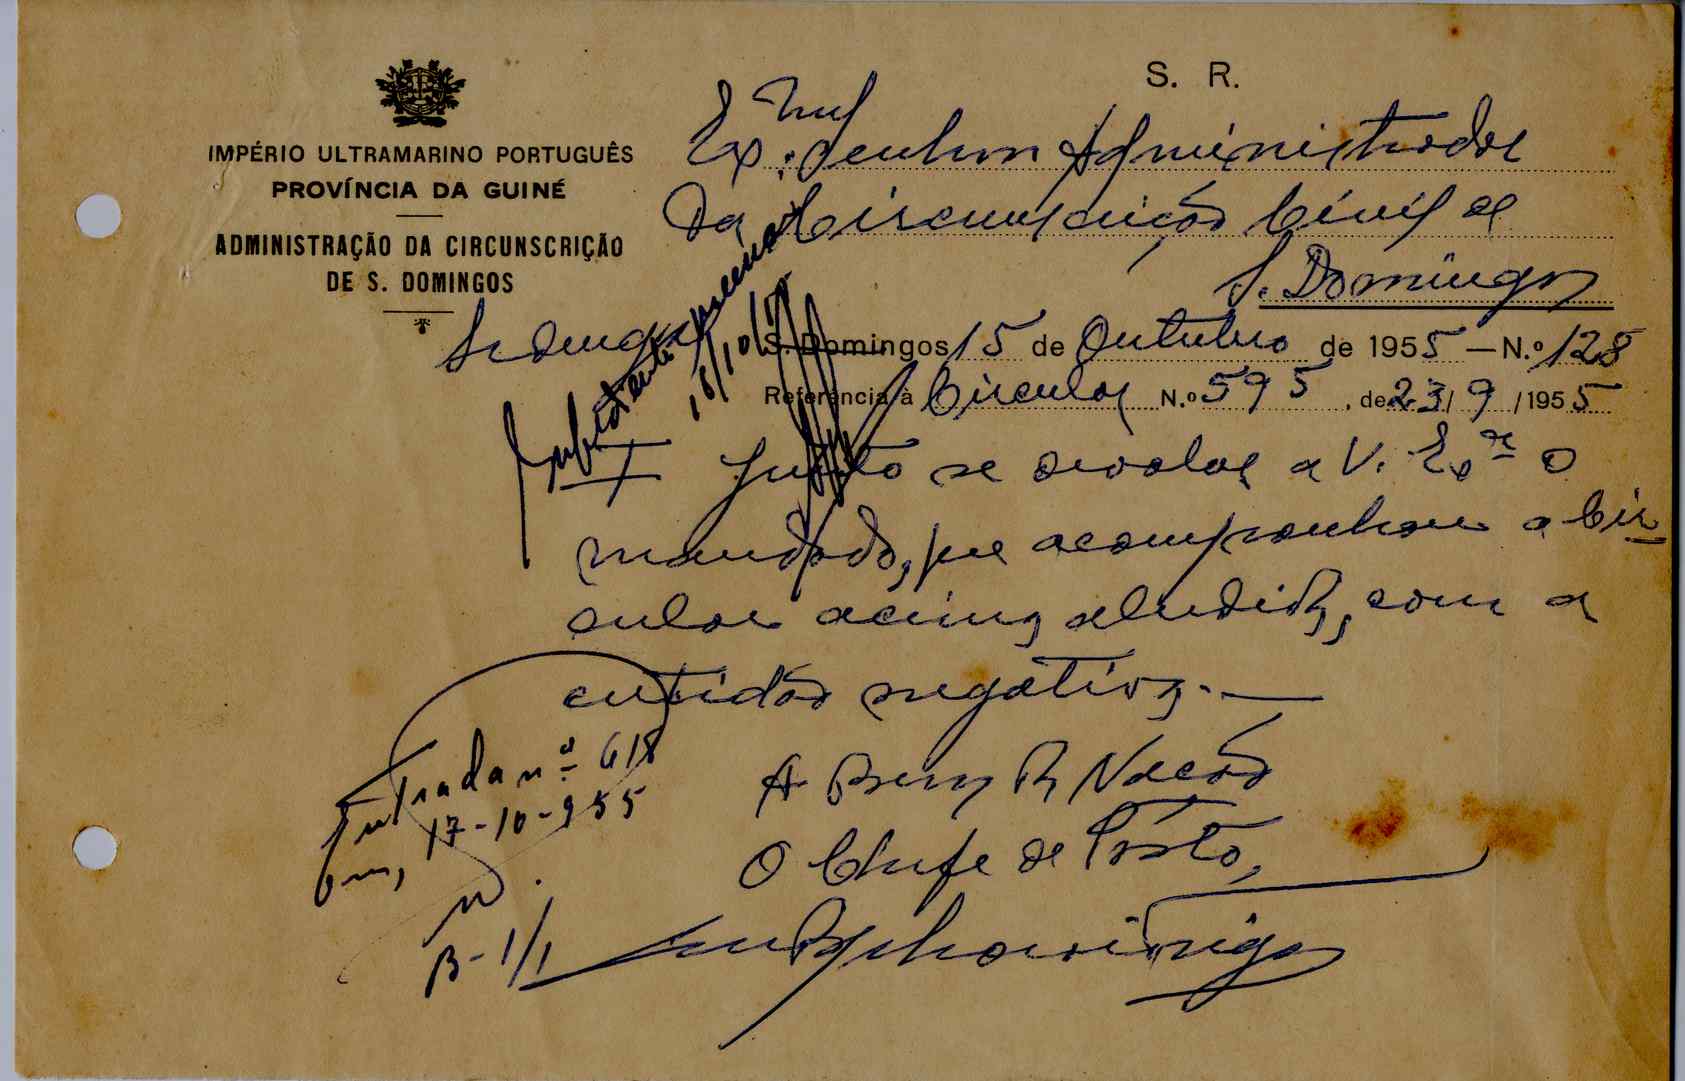 S. R.
IMPÉRIO ULTRAMARINO PORTUGUÊS
PROVÍNCIA DA GUINÉ
ADMINISTRAÇÃO DA CIRCUNSCRIÇÃO
DE S. DOMINGOS
Ex.mo Senhor Administrador
da Circunscrição Civil de
S. Domingos
S. Domingos 15 de Outubro de 1955 — N.º 128
Referência à Circular N.º 595, de 23/9/1955
16/10/55
I Junto se devolve a V. Ex.ª o
mandado, que acompanhou a Cir-
cular acima aludida, com a
certidão negativa. —
A Bem da Nação
O Chefe de Pôsto,
Entrada nº 618
Em, 17-10-955
B-1/1